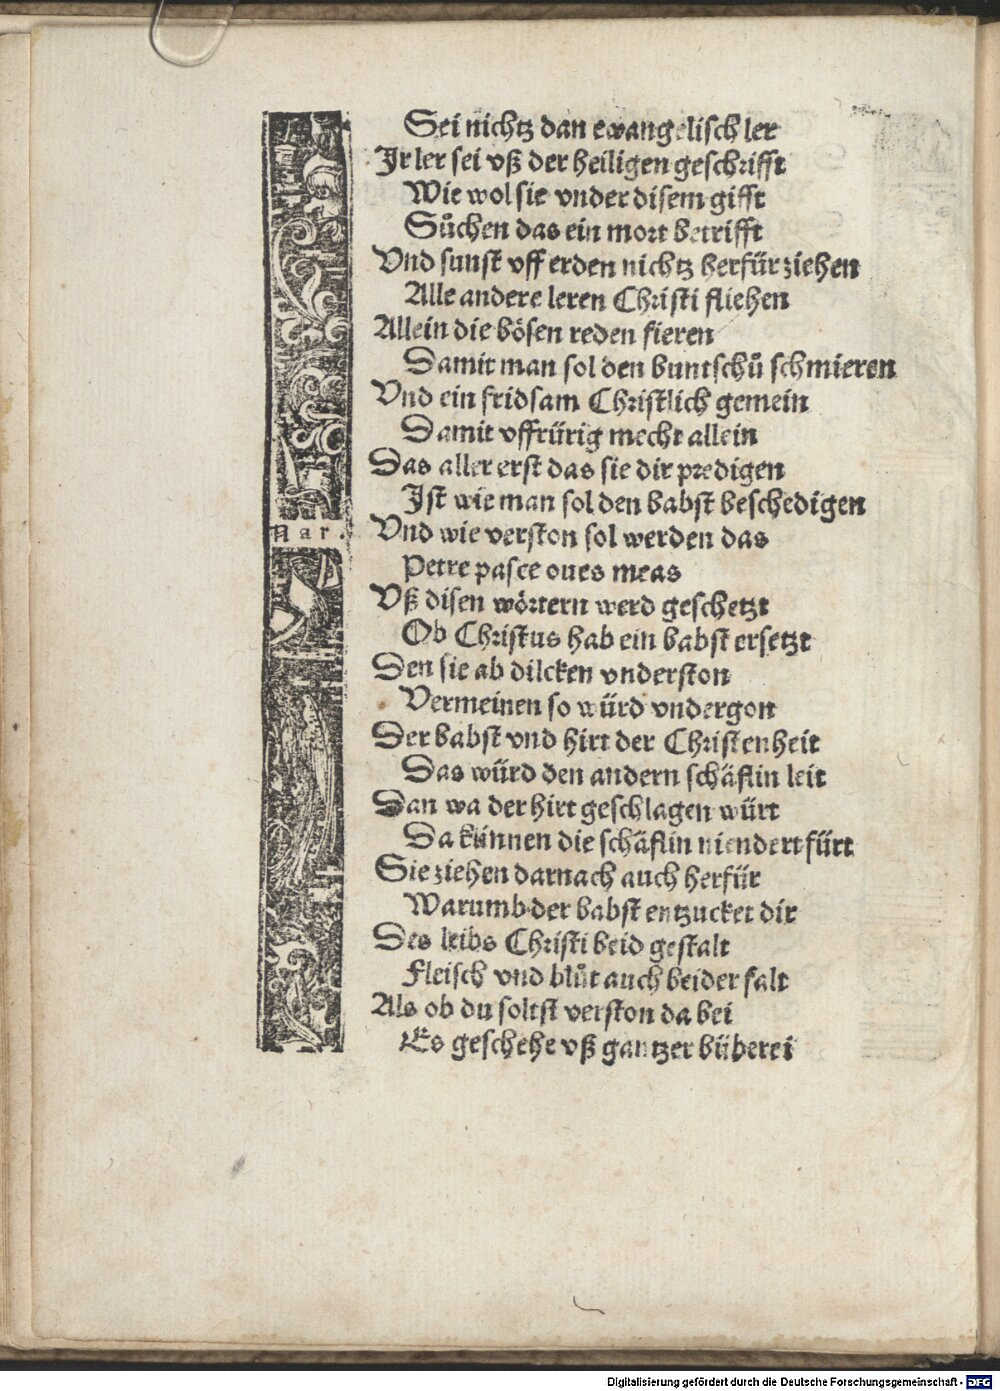 Sei nichtz dan ewangelisch ler
Ir ler sei vß der heiligen geschrifft
Wie wol sie vnder disem gifft
Sůchen das ein mort betrifft
Vnd sunst vff erden nichtz herfür ziehen
Alle andere leren Christi fliehen
Allein die bösen reden fieren
Damit man sol den buntschů schmieren
Vnd ein fridsam Christlich gemein
Damit vffrürig mecht allein
Das aller erst das sie dir predigen
Ist wie man sol den babst beschedigen
Nar.
Vnd wie verston sol werden das
Petre pasce oues meas
Vß disen wörtern werd geschetzt
Ob Christus hab ein babst ersetzt
Den sie ab dilcken vnderston
Vermeinen so würd vndergon
Der babst vnd hirt der Christenheit
Das würd den andern schäflin leit
Dan wa der hirt geschlagen würt
Da künnen die schäflin niendert fürt
Sie ziehen darnach auch herfür
Warumb der babst entzucket dir
Des leibs Christi beid gestalt
Fleisch vnd blůt auch beider falt
Als ob du soltst verston da bei
Es geschehe vß gantzer büberei
Digitalisierung gefördert durch die Deutsche Forschungsgemeinschaft - DFG